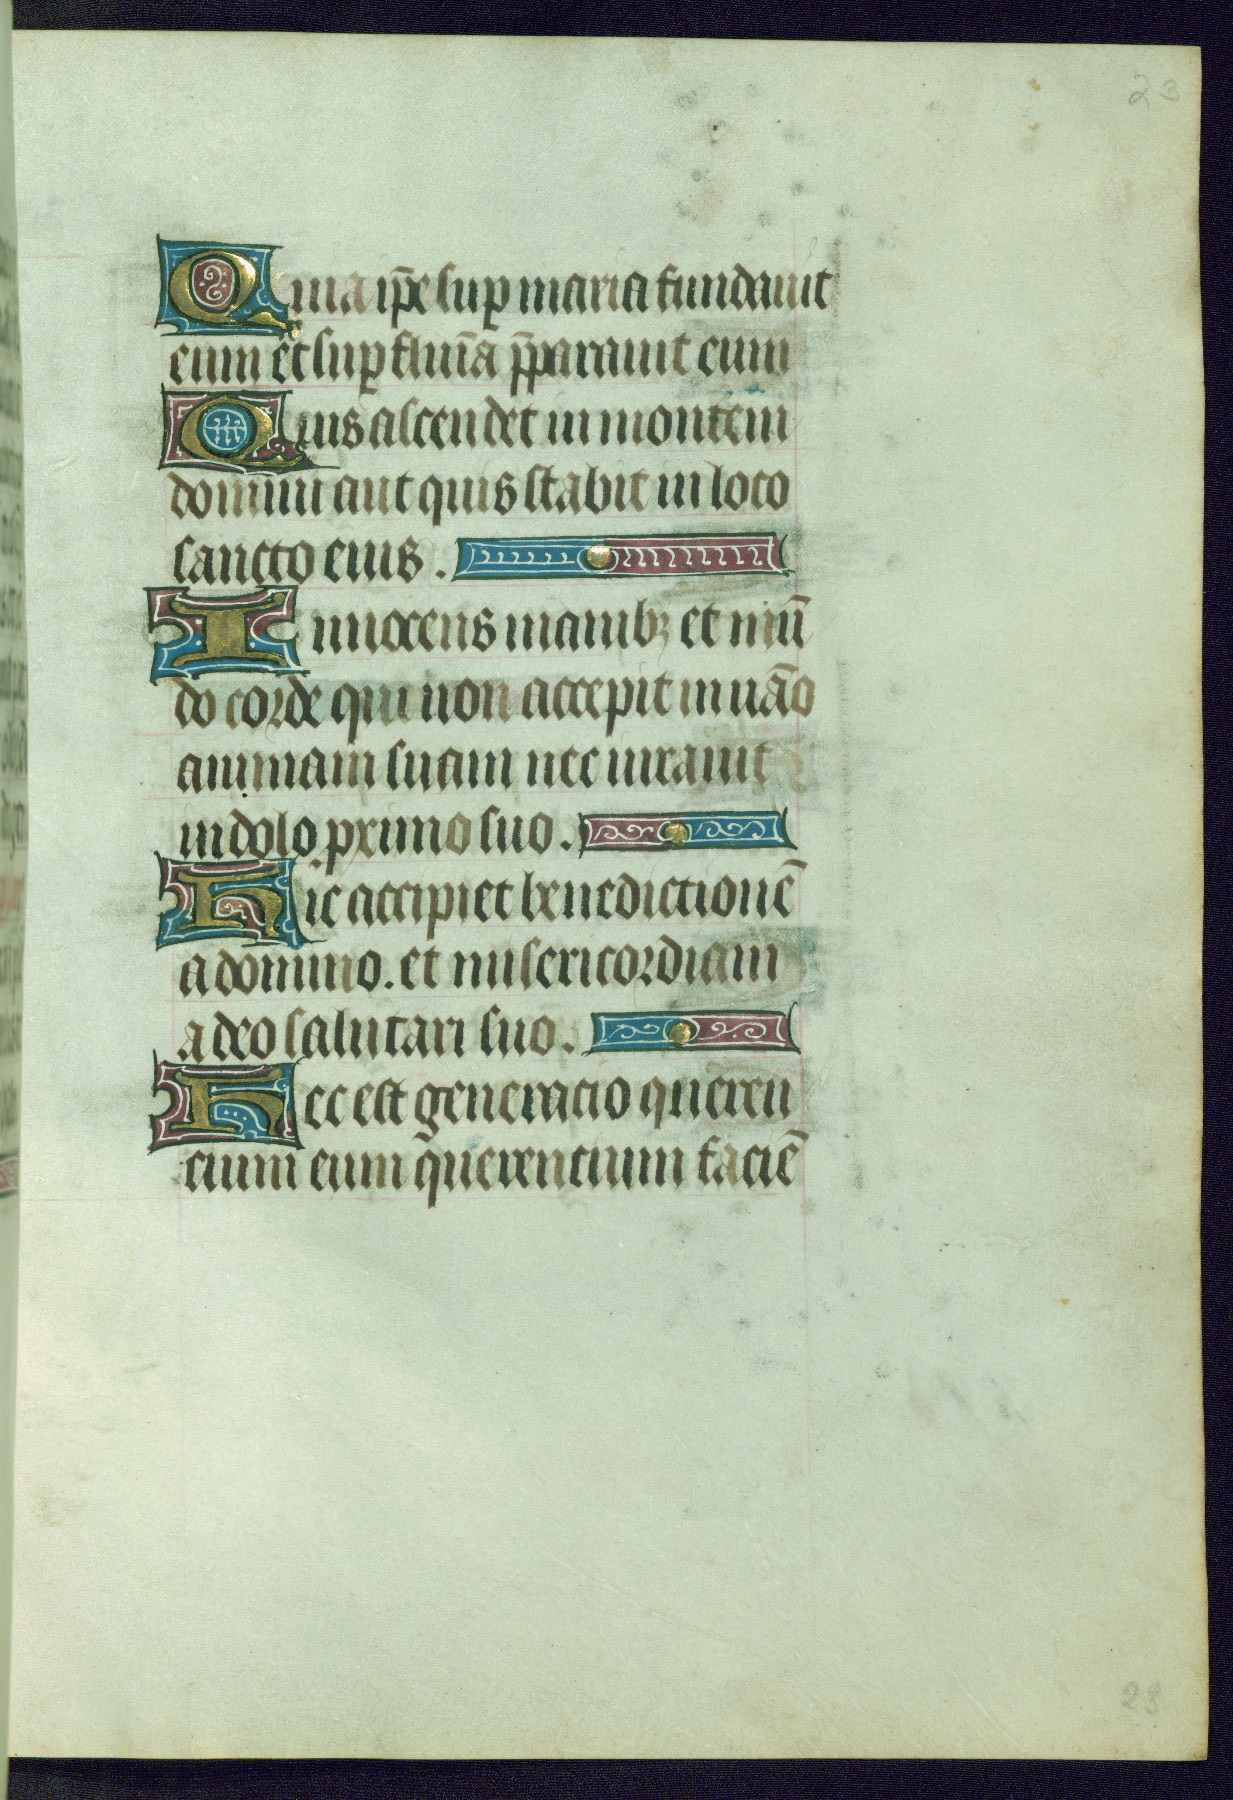 23
Quia ip̄e sup̱ maria fundauit
eum et sup̱ flumīa p̄parauit eum
Quis ascendet in montem
domini aut quis stabit in loco
sancto eius.
Innocens manibꝫ et mū
do corde qui non accepit in uāo
animam suam nec iurauit
in dolo proximo suo.
Hic accipiet benedictionē
a domino. et misericordiam
a deo salutari suo.
Hec est generacio queren
cium eum querencium faciē
23